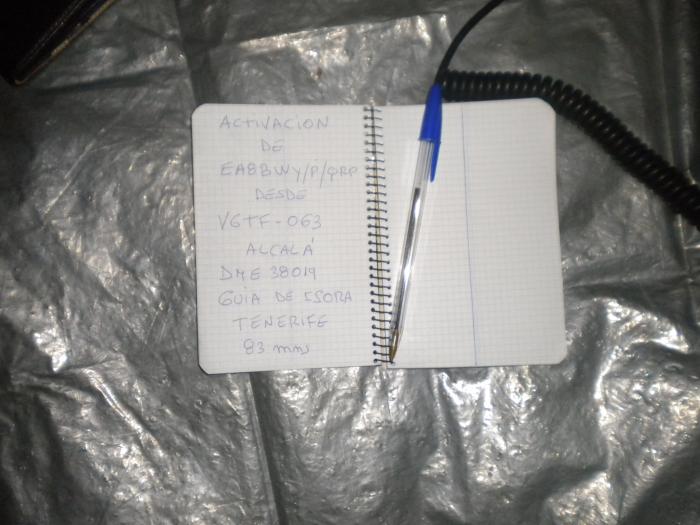 ACTIVACION
DE
EA8BWY/P/QRP
DESDE
VGTF-063
ALCALÁ
DME 38019
GUIA DE ISORA
TENERIFE
83 mms